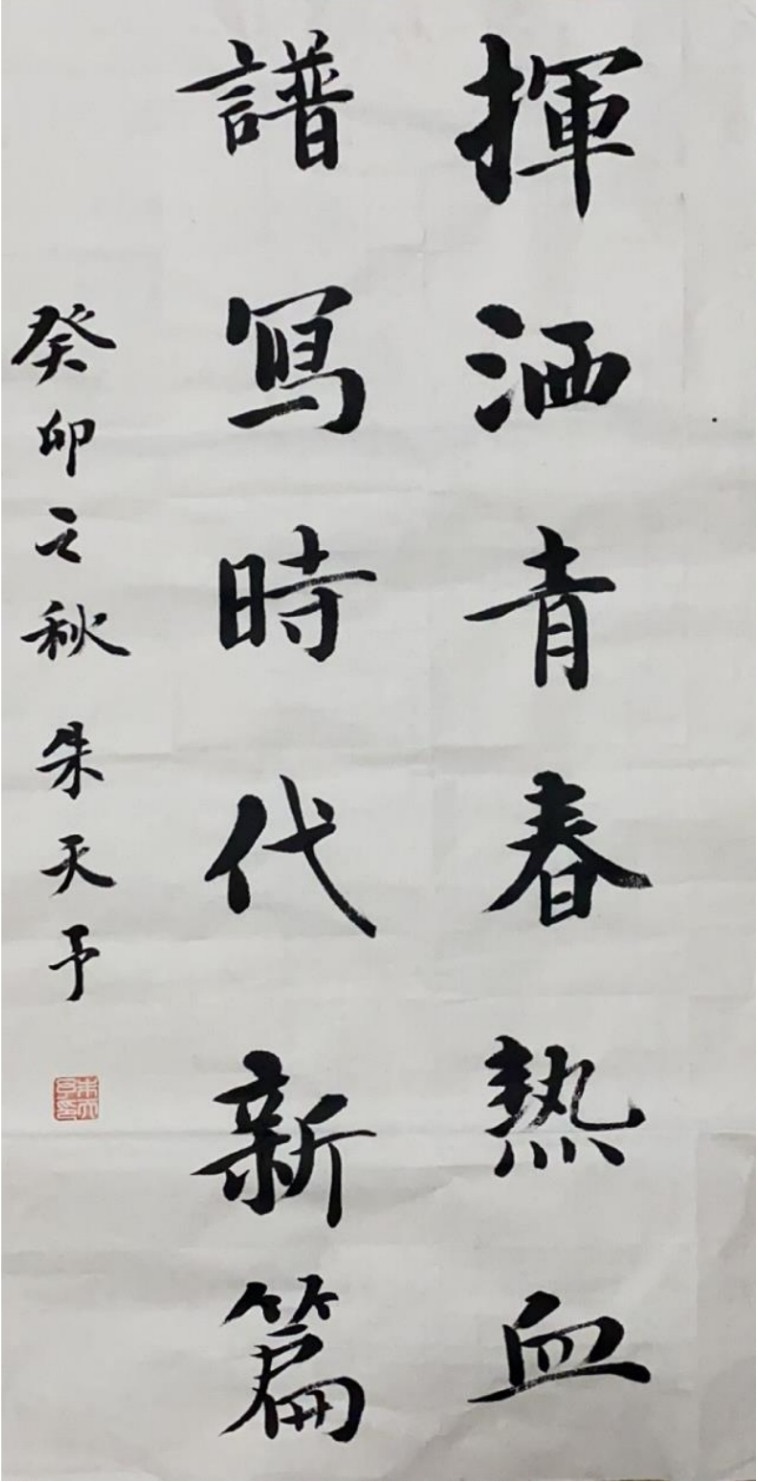 揮洒青春熱血
譜寫時代新篇
癸卯之秋 朱天予
朱天予印